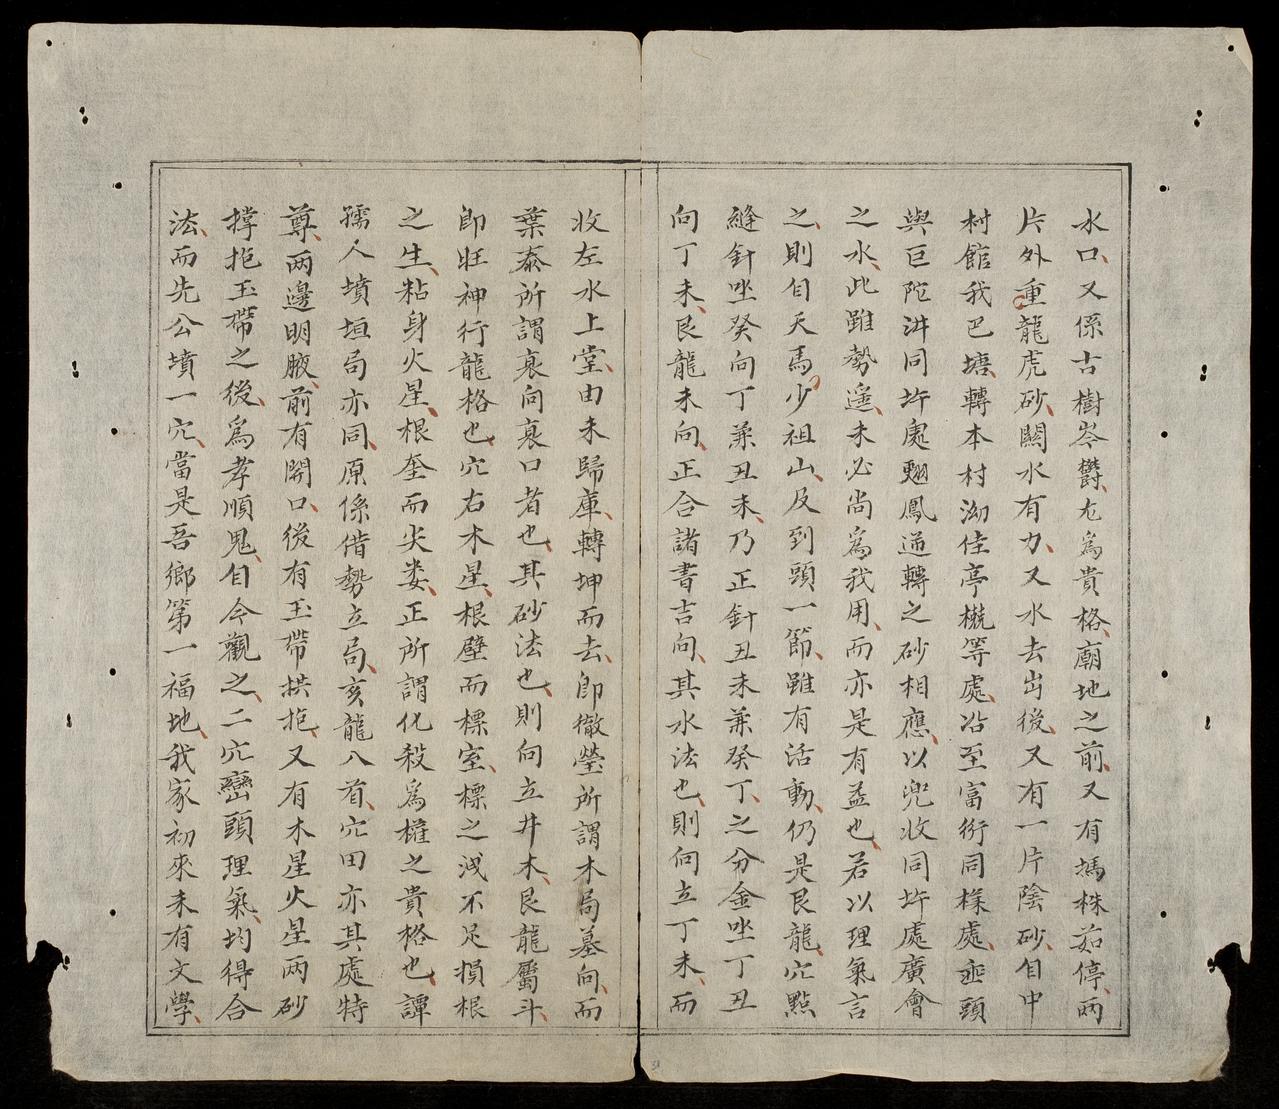 水口又係古樹岑鬱尤爲貴格廟地之前又有榪株茹停兩
片外重龍虎砂關水有力又水去出後又有一片陰砂自中
村館我巴塘轉本村泑佳亭櫳等處沿至富衍同様處亟頭
與巨陀汫同圷處翹鳳逆轉之砂相應以兜收同圷處廣會
之水此雖勢遥未必尚爲我用而亦是有益也若以理氣言
之則自天馬少祖山及到頭一節雖有活動仍是艮龍穴點
縫針坐癸向丁兼丑未乃正針丑未兼癸丁之分金坐丁丑
向丁未艮龍未向正合諸書吉向其水法也則向立丁未而
收左水上堂由未歸庫轉坤而去即徹瑩所謂木局墓向而
葉泰所謂衰向衰口者也其砂法也則向立井木艮龍屬斗
即旺神行龍格也穴右木星根壁而標室標之浅不足損根
之生粘身火星根奎而尖婁正所謂化殺爲權之貴格也譚
孺人墳垣局亦同原係借勢立局亥龍入首穴田亦其處特
尊两邊明腋前有開口後有玉帶拱抱又有木星火星两砂
撑抱玉帶之後爲孝順鬼自今觀之二穴巒頭理氣均得合
法而先公墳一穴當是吾鄉第一福地我家初來未有文學